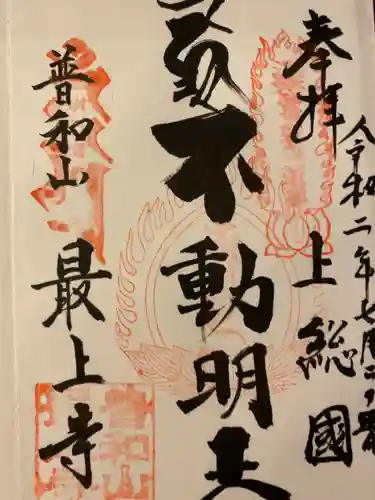 奉拝
令和二年七月二十
上總國
不動明
普和山
最上寺
普和山